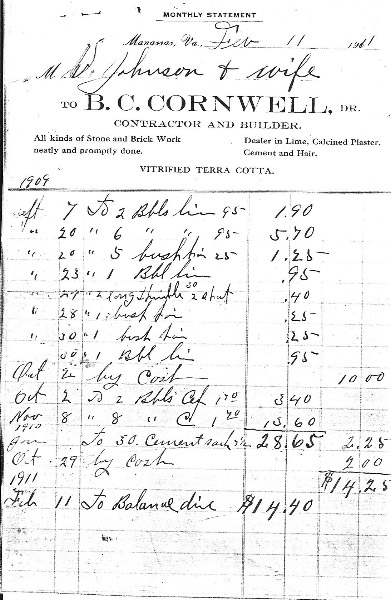 MONTHLY STATEMENT
Manassas, Va. Feb 11 1911
M Johnson & wife
TO B. C. CORNWELL, DR.
CONTRACTOR AND BUILDER.
All kinds of Stone and Brick Work neatly and promptly done.
Dealer in Lime, Calcined Plaster, Cement and Hair.
VITRIFIED TERRA COTTA.
1909
Sept 7 To 2 Bbls lim 95 1.90
" 20 " 6 " " 95 5.70
" 20 " 5 bush lim 25 1.25
" 23 " 1 Bbl lim .95
" 27 " 2 long 20 .40
" 28 " 1 bush lim .25
" 30 " 1 bush lim .25
30 " 1 Bbl lim .95
Oct 2 by Cash 10 00
Oct 2 To 2 Bbls Cef 1 70 3.40
Nov 8 " 8 " C 1 70 13.60
1910
Jan To 30 Cement sack 28.65 2.25
Oct 29 by Cash 2 00
1911 $14.25
Feb 11 To Balance due $14.40